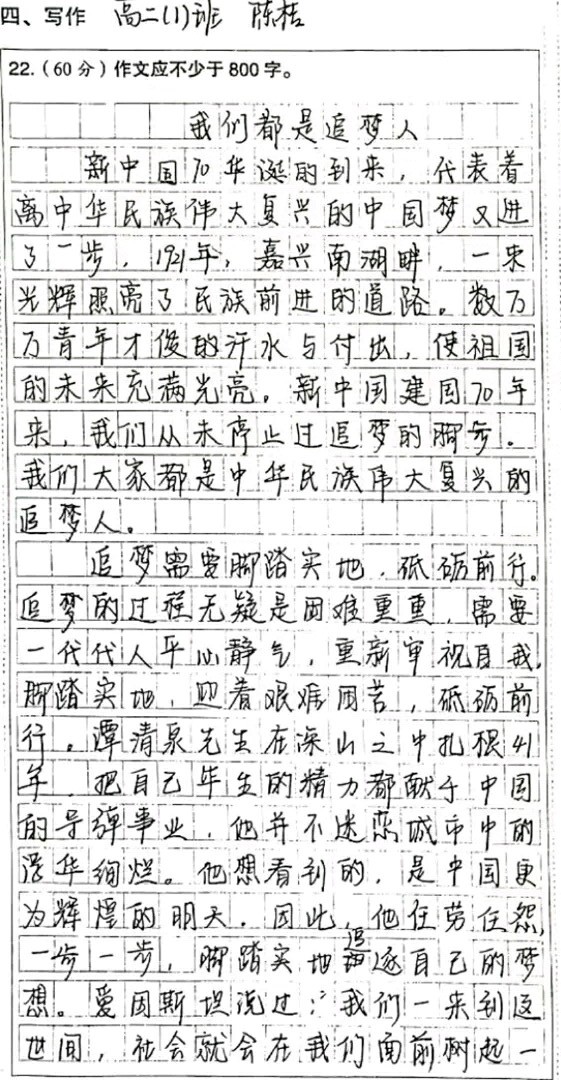 四、写作 高二(1)班 陈桔
22.(60分)作文应不少于800字。
我们都是追梦人
新中国70华诞的到来，代表着
离中华民族伟大复兴的中国梦又进
了一步，1921年，嘉兴南湖畔，一束
光辉照亮了民族前进的道路。数万
万青年才俊的汗水与付出，使祖国
的未来充满光亮。新中国建国70年
来，我们从未停止过追梦的脚步。
我们大家都是中华民族伟大复兴的
追梦人。
追梦需要脚踏实地，砥砺前行。
追梦的过程无疑是困难重重，需要
一代代人平心静气，重新审视自我，
脚踏实地，迎着艰难困苦，砥砺前
行。潭清泉先生在深山之中扎根41
年，把自己毕生的精力都献于中国
的导弹事业，他并不迷恋城市中的
浮华绚烂。他想看到的，是中国更
为辉煌的明天，因此，他任劳任怨，
一步一步，脚踏实地追逐自己的梦
想。爱因斯坦说过：我们一来到这
世间，社会就会在我们面前树起一